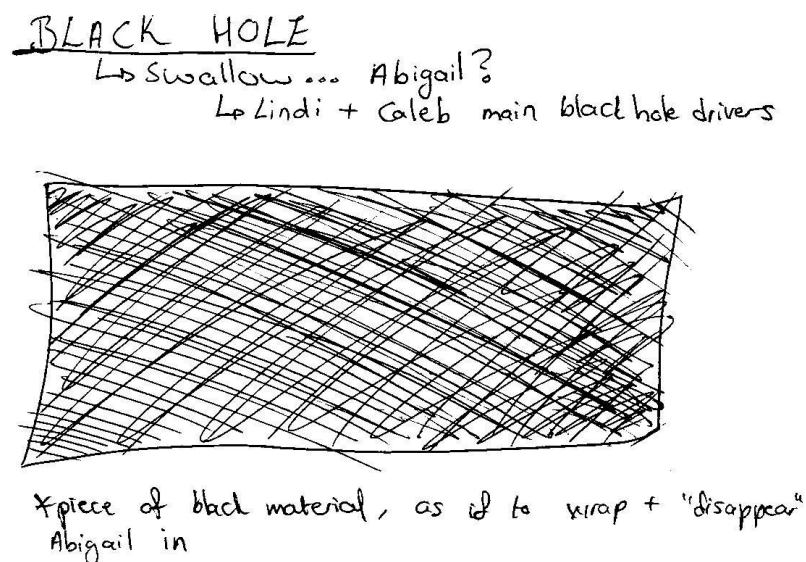 BLACK HOLE
↳ Swallow... Abigail?
↳ Lindi + Caleb main black hole drivers
*piece of black material, as if to wrap + "disappear"
Abigail in